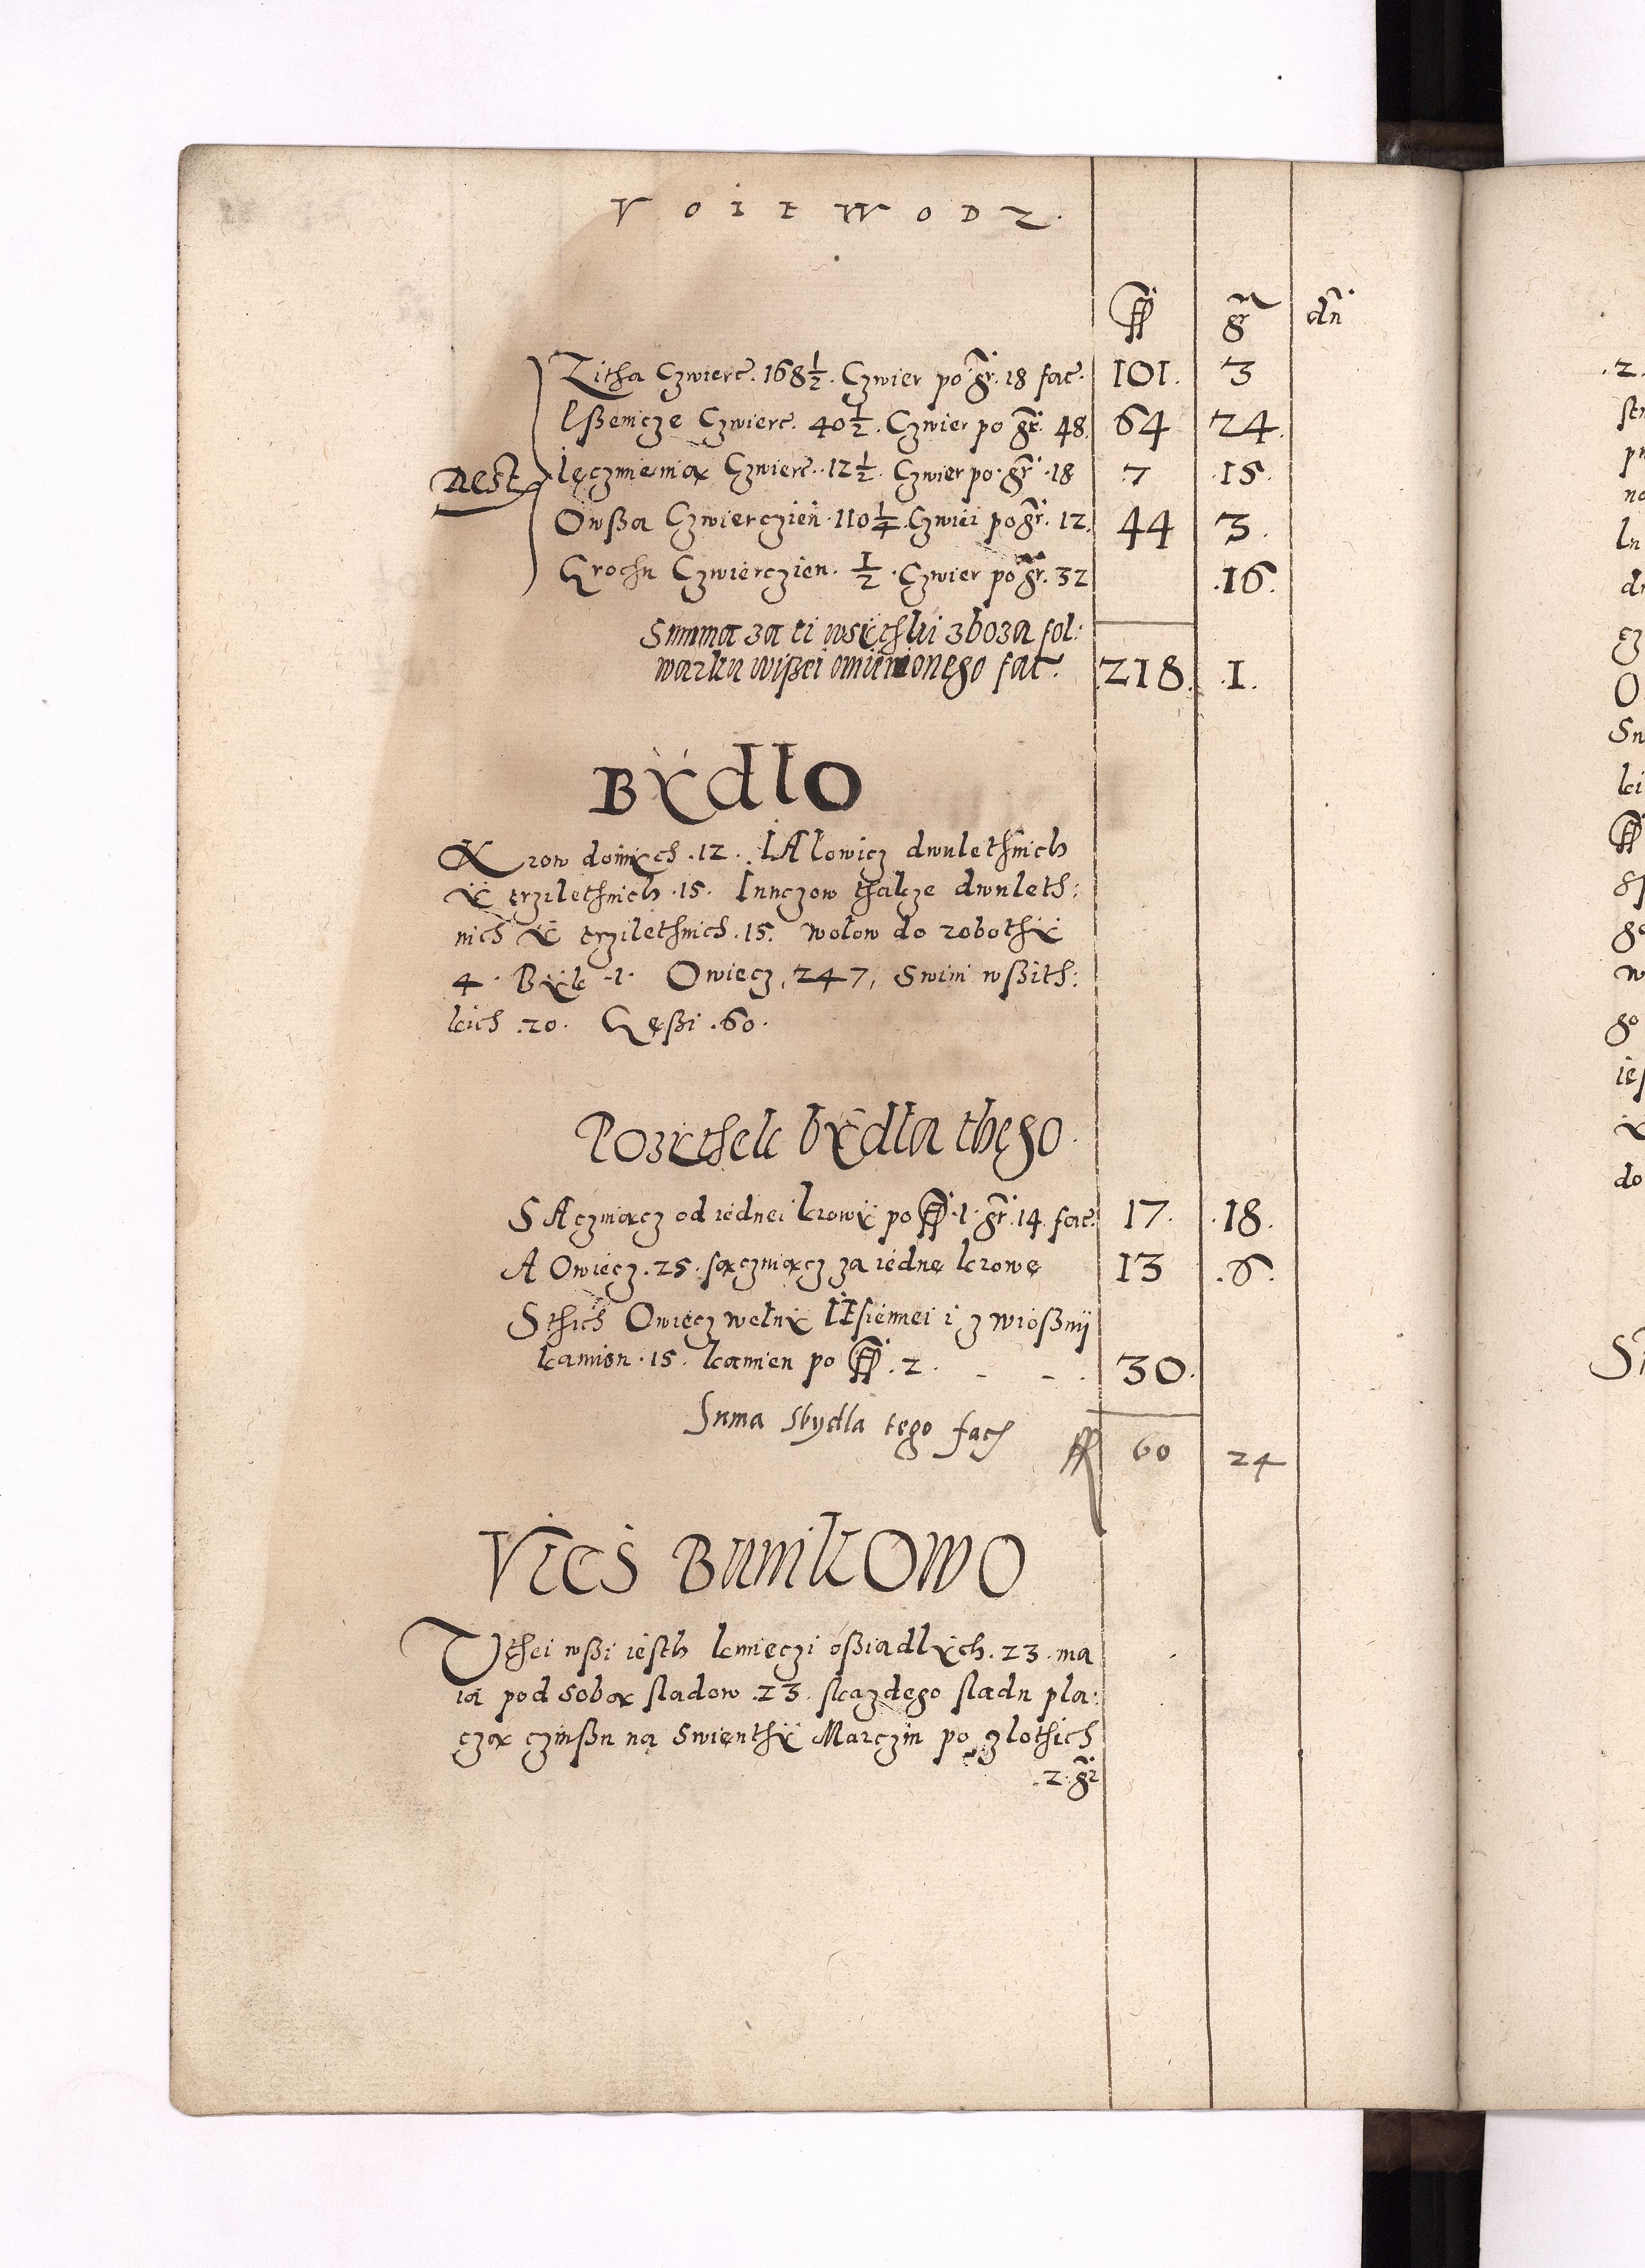 VOIEWODZ.
ff gr dn
Zitha Czwierc. 168½. Czwier po gr. 18 fac. 101. 3
Psenicze Czwierc. 40½. Czwier po gr. 48. 64 24.
Rest Ięczmienią Czwierc. 12½. Czwier po gr. 18 7 15.
Owßa Czwierczien 110¼. Czwier po gr. 12. 44 3.
Grochu Czwierczien. ½. Czwier po gr. 32 16.
Summa za ti wsÿthki zboza fol:
warku wißei omienionego fac. 218. 1.
BÿdłO
Krow doinÿch .12. IAlowicz dwulethnich
ÿ trzilethnich .15. Iunczow thakze dwuleth:
nich ÿ trzilethnich .15. wołow do robothÿ
4. Bÿk .1. Owiecz, 247, Swini wßith:
kich .20. Gęßi .60.
Pozÿthek bÿdła thego.
SAczuiącz od iednei krowÿ po ff .1. gr. 14. fac. 17. 18.
A Owiecz .25. sączuiącz za iednę krowę 13 .6.
S thich Owiecz wełnÿ IEsiennei i z wiosßnij
kamion .15. kamien po ff .2. - - . 30.
Suma Sbydla tego fac ff 60 24
VIES BunikOwO
W thei wßi iesth kmieczi oßiadlÿch. 23. ma
ią pod sobą sladow .23. skazdego sladu pla:
czą czinßu na Swienthÿ Marczin po zlothich
.2. gr